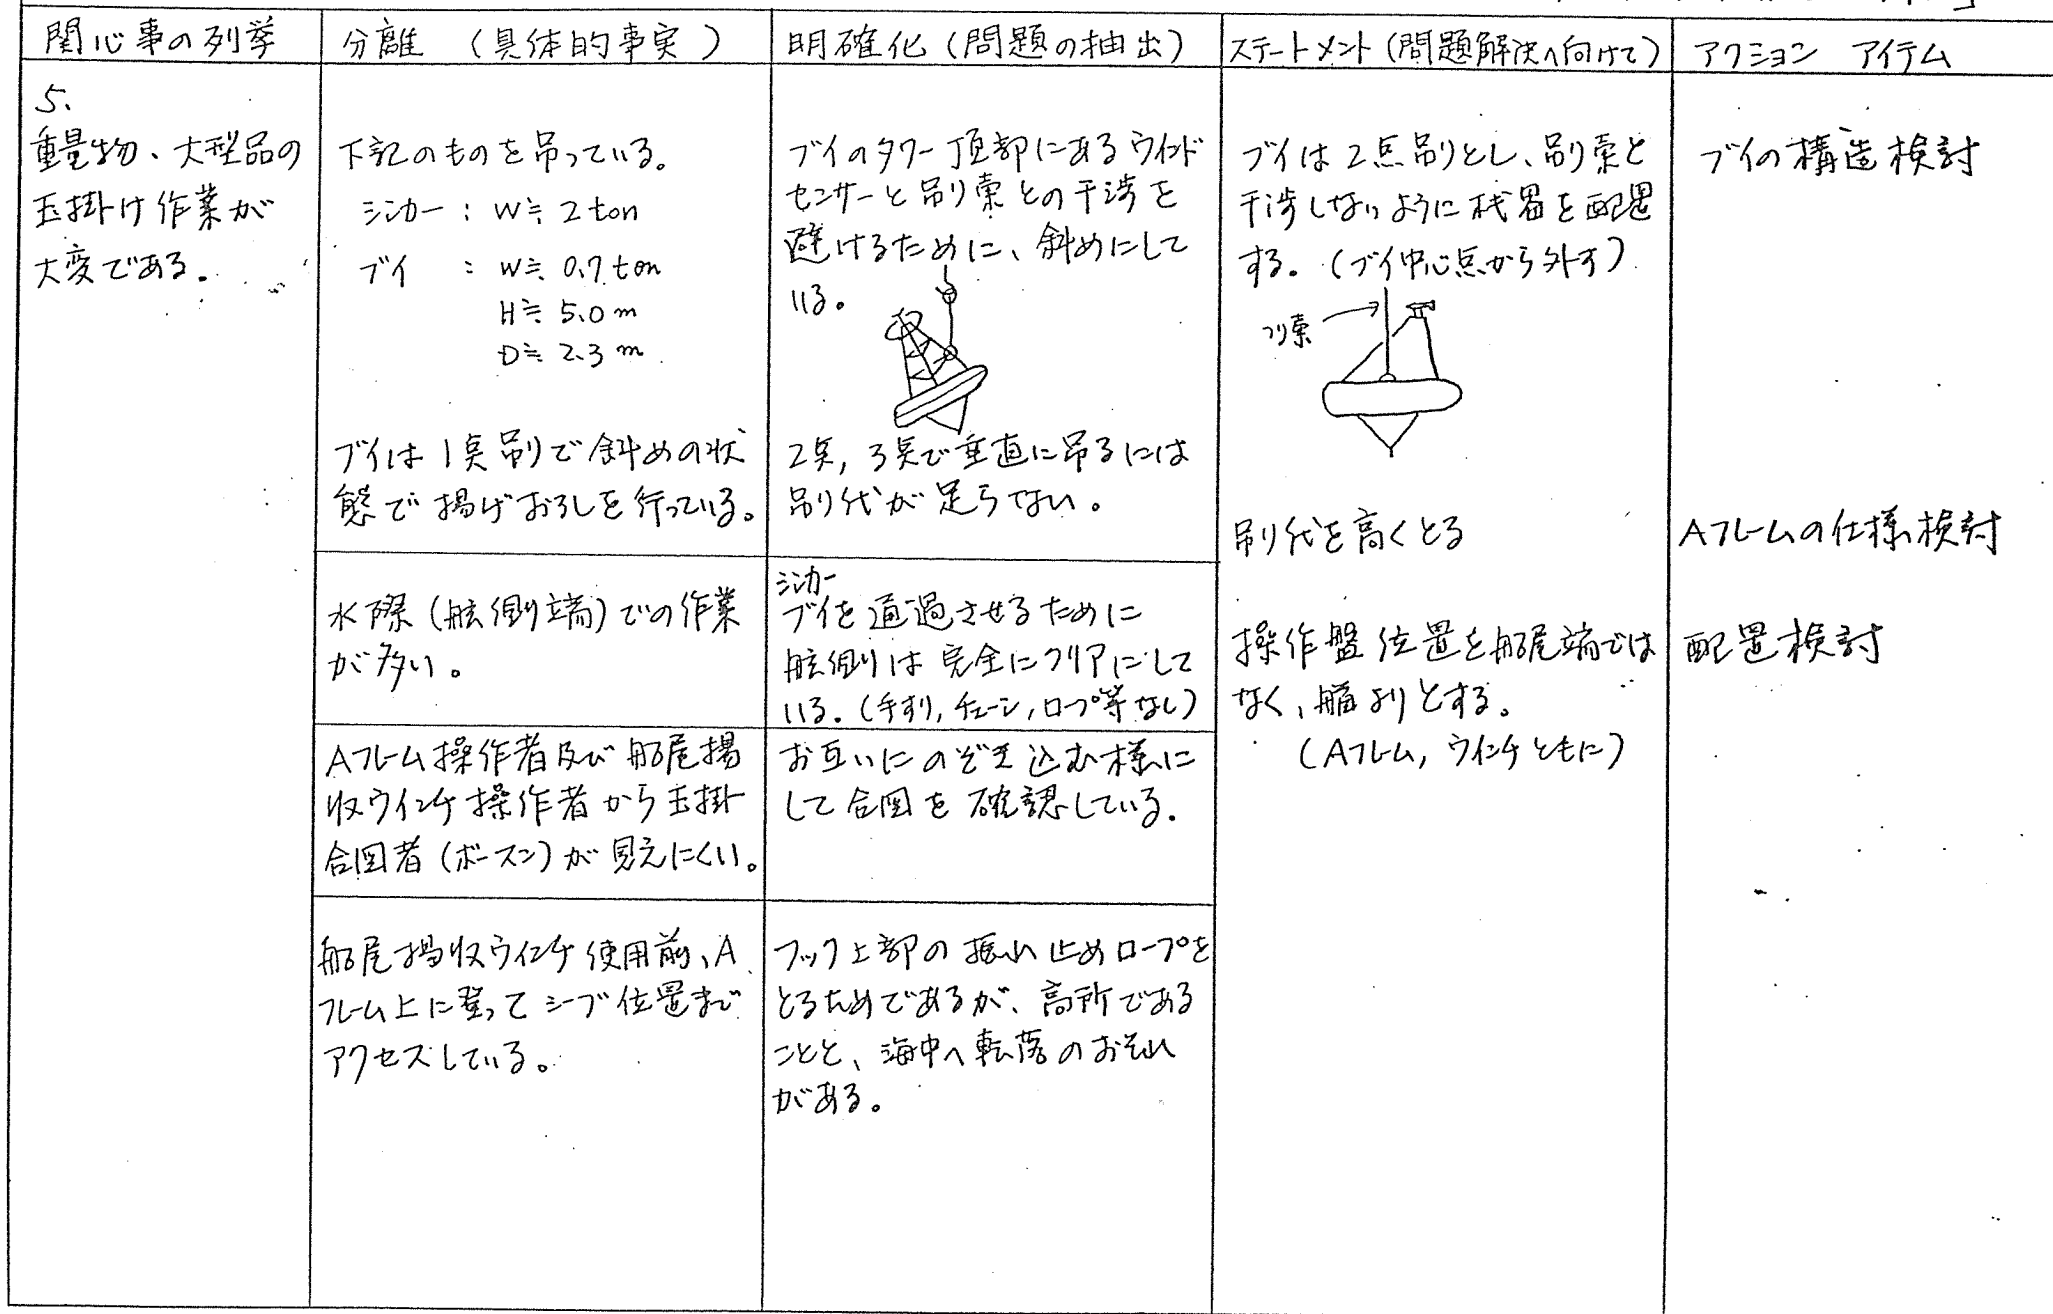 関心事の列挙
分離 （具体的事実）
明確化（問題の抽出）
ステートメント（問題解決へ向けて）
アクション アイテム
5.
重量物、大型品の
玉掛け作業が
大変である。
下記のものを吊っている。
シンカー : W≒ 2 ton
ブイ : W≒ 0.7 ton
H≒ 5.0 m
D≒ 2.3 m
ブイは1点吊りで斜めの状
態で揚げおろしを行っている。
ブイのタワー頂部にあるウインド
センサーと吊り索との干渉を
避けるために、斜めにして
いる。
2点,3点で垂直に吊るには
吊り代が足らない。
ブイは2点吊りとし、吊り索と
干渉しないように機器を配置
する。（ブイ中心点から外す）
つり索
吊り代を高くとる
ブイの構造検討
Aフレームの仕様検討
水際（舷側端）での作業
が多い。
シンカー
ブイを通過させるために
舷側は完全にクリアにして
いる。（手すり,チェーン,ロープ等なし）
操作盤位置を船尾端では
なく、艏よりとする。
（Aフレーム,ウインチともに）
配置検討
Aフレーム操作者及び船尾揚
収ウインチ操作者から玉掛
合図者（ボースン）が見えにくい。
お互いにのぞき込む様に
して合図を確認している。
船尾揚収ウインチ使用前、A
フレーム上に登ってシーブ位置まで
アクセスしている。
フック上部の振れ止めロープを
とるためであるが、高所である
ことと、海中へ転落のおそれ
がある。